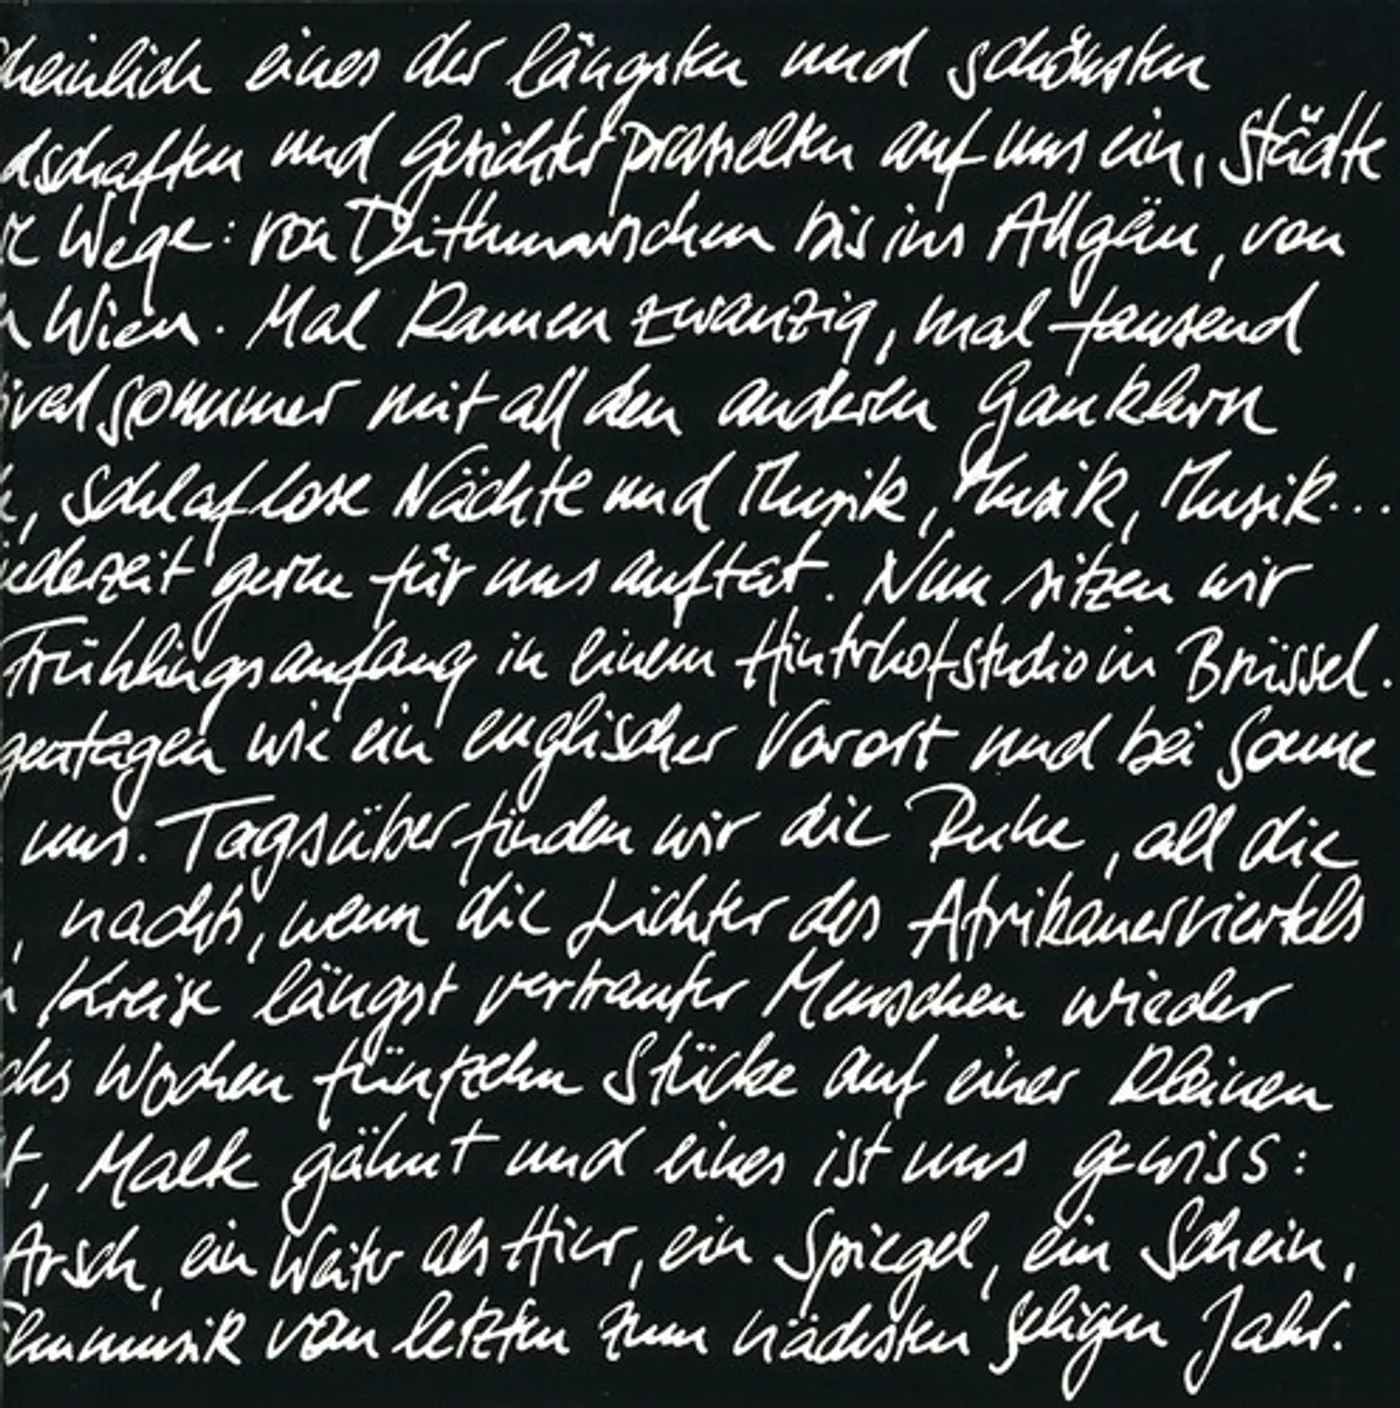 cheinlich eines der längsten und schönsten
dschaften und Gesichter prasselten auf uns ein, Städte
re Wege: von Dithmarschen bis ins Allgäu, von
h Wien. Mal kamen zwanzig, mal tausend
ivalsommer mit all den anderen Gauklern
, schlaflose Nächte und Musik, Musik, Musik...
ederzeit gerne für uns auftat. Nun sitzen wir
Frühlingsanfang in einem Hinterhofstudio in Brüssel.
gentagen wie ein englischer Vorort und bei Sonne
uns. Tagsüber finden wir die Ruhe, all die
, nachts, wenn die Lichter des Afrikanerviertels
n Kreise längst vertrauter Menschen wieder
chs Wochen fünfzehn Stücke auf einer kleinen
t, Maek gähnt und eines ist uns gewiss:
Arsch, ein Weiter als Hier, ein Spiegel, ein Schein,
ilmmusik vom letzten zum nächsten seligen Jahr.